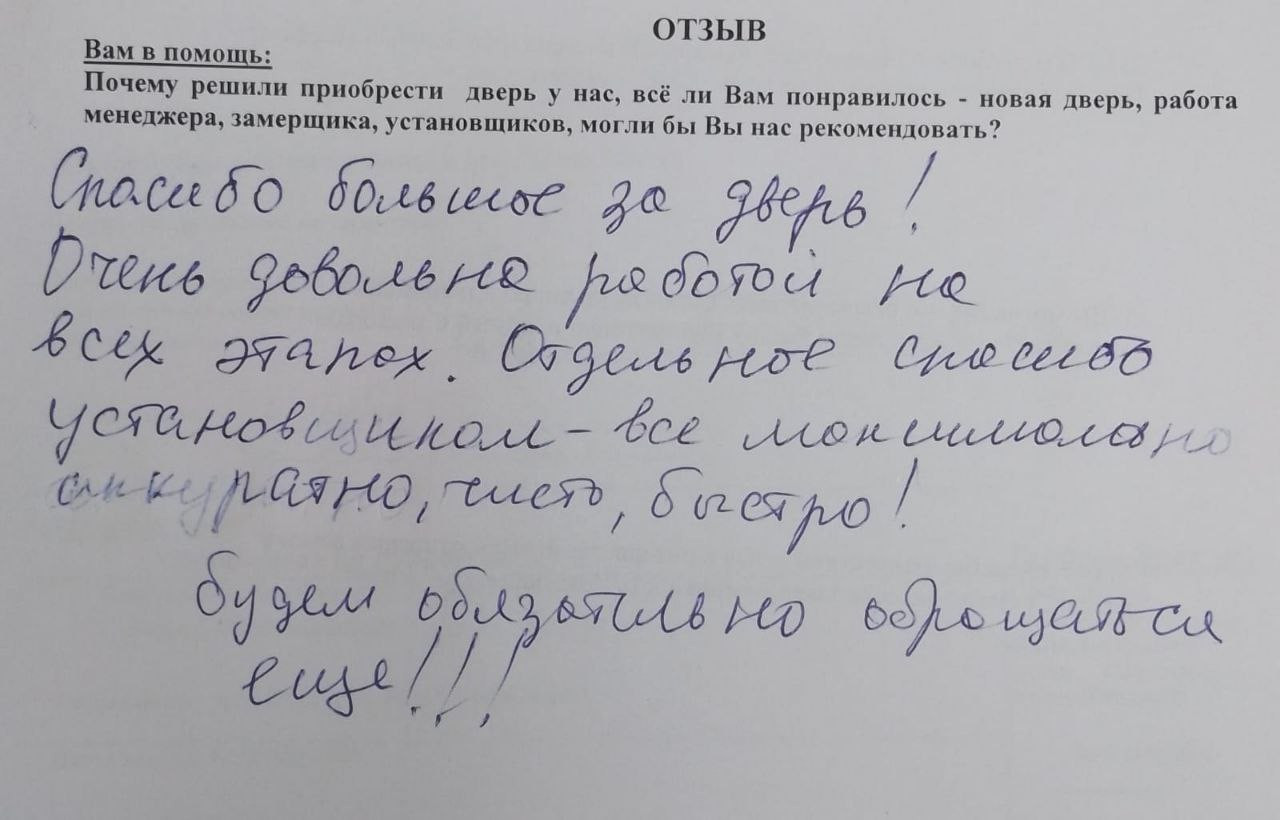 ОТЗЫВ
Вам в помощь:
Почему решили приобрести дверь у нас, всё ли Вам понравилось - новая дверь, работа
менеджера, замерщика, установщиков, могли бы Вы нас рекомендовать?
Спасибо большое за дверь!
Очень довольна работой на
всех этапах. Отдельное спасибо
установщикам - все максимально
аккуратно, чисто, быстро!
будем обязательно обращаться
еще!!!